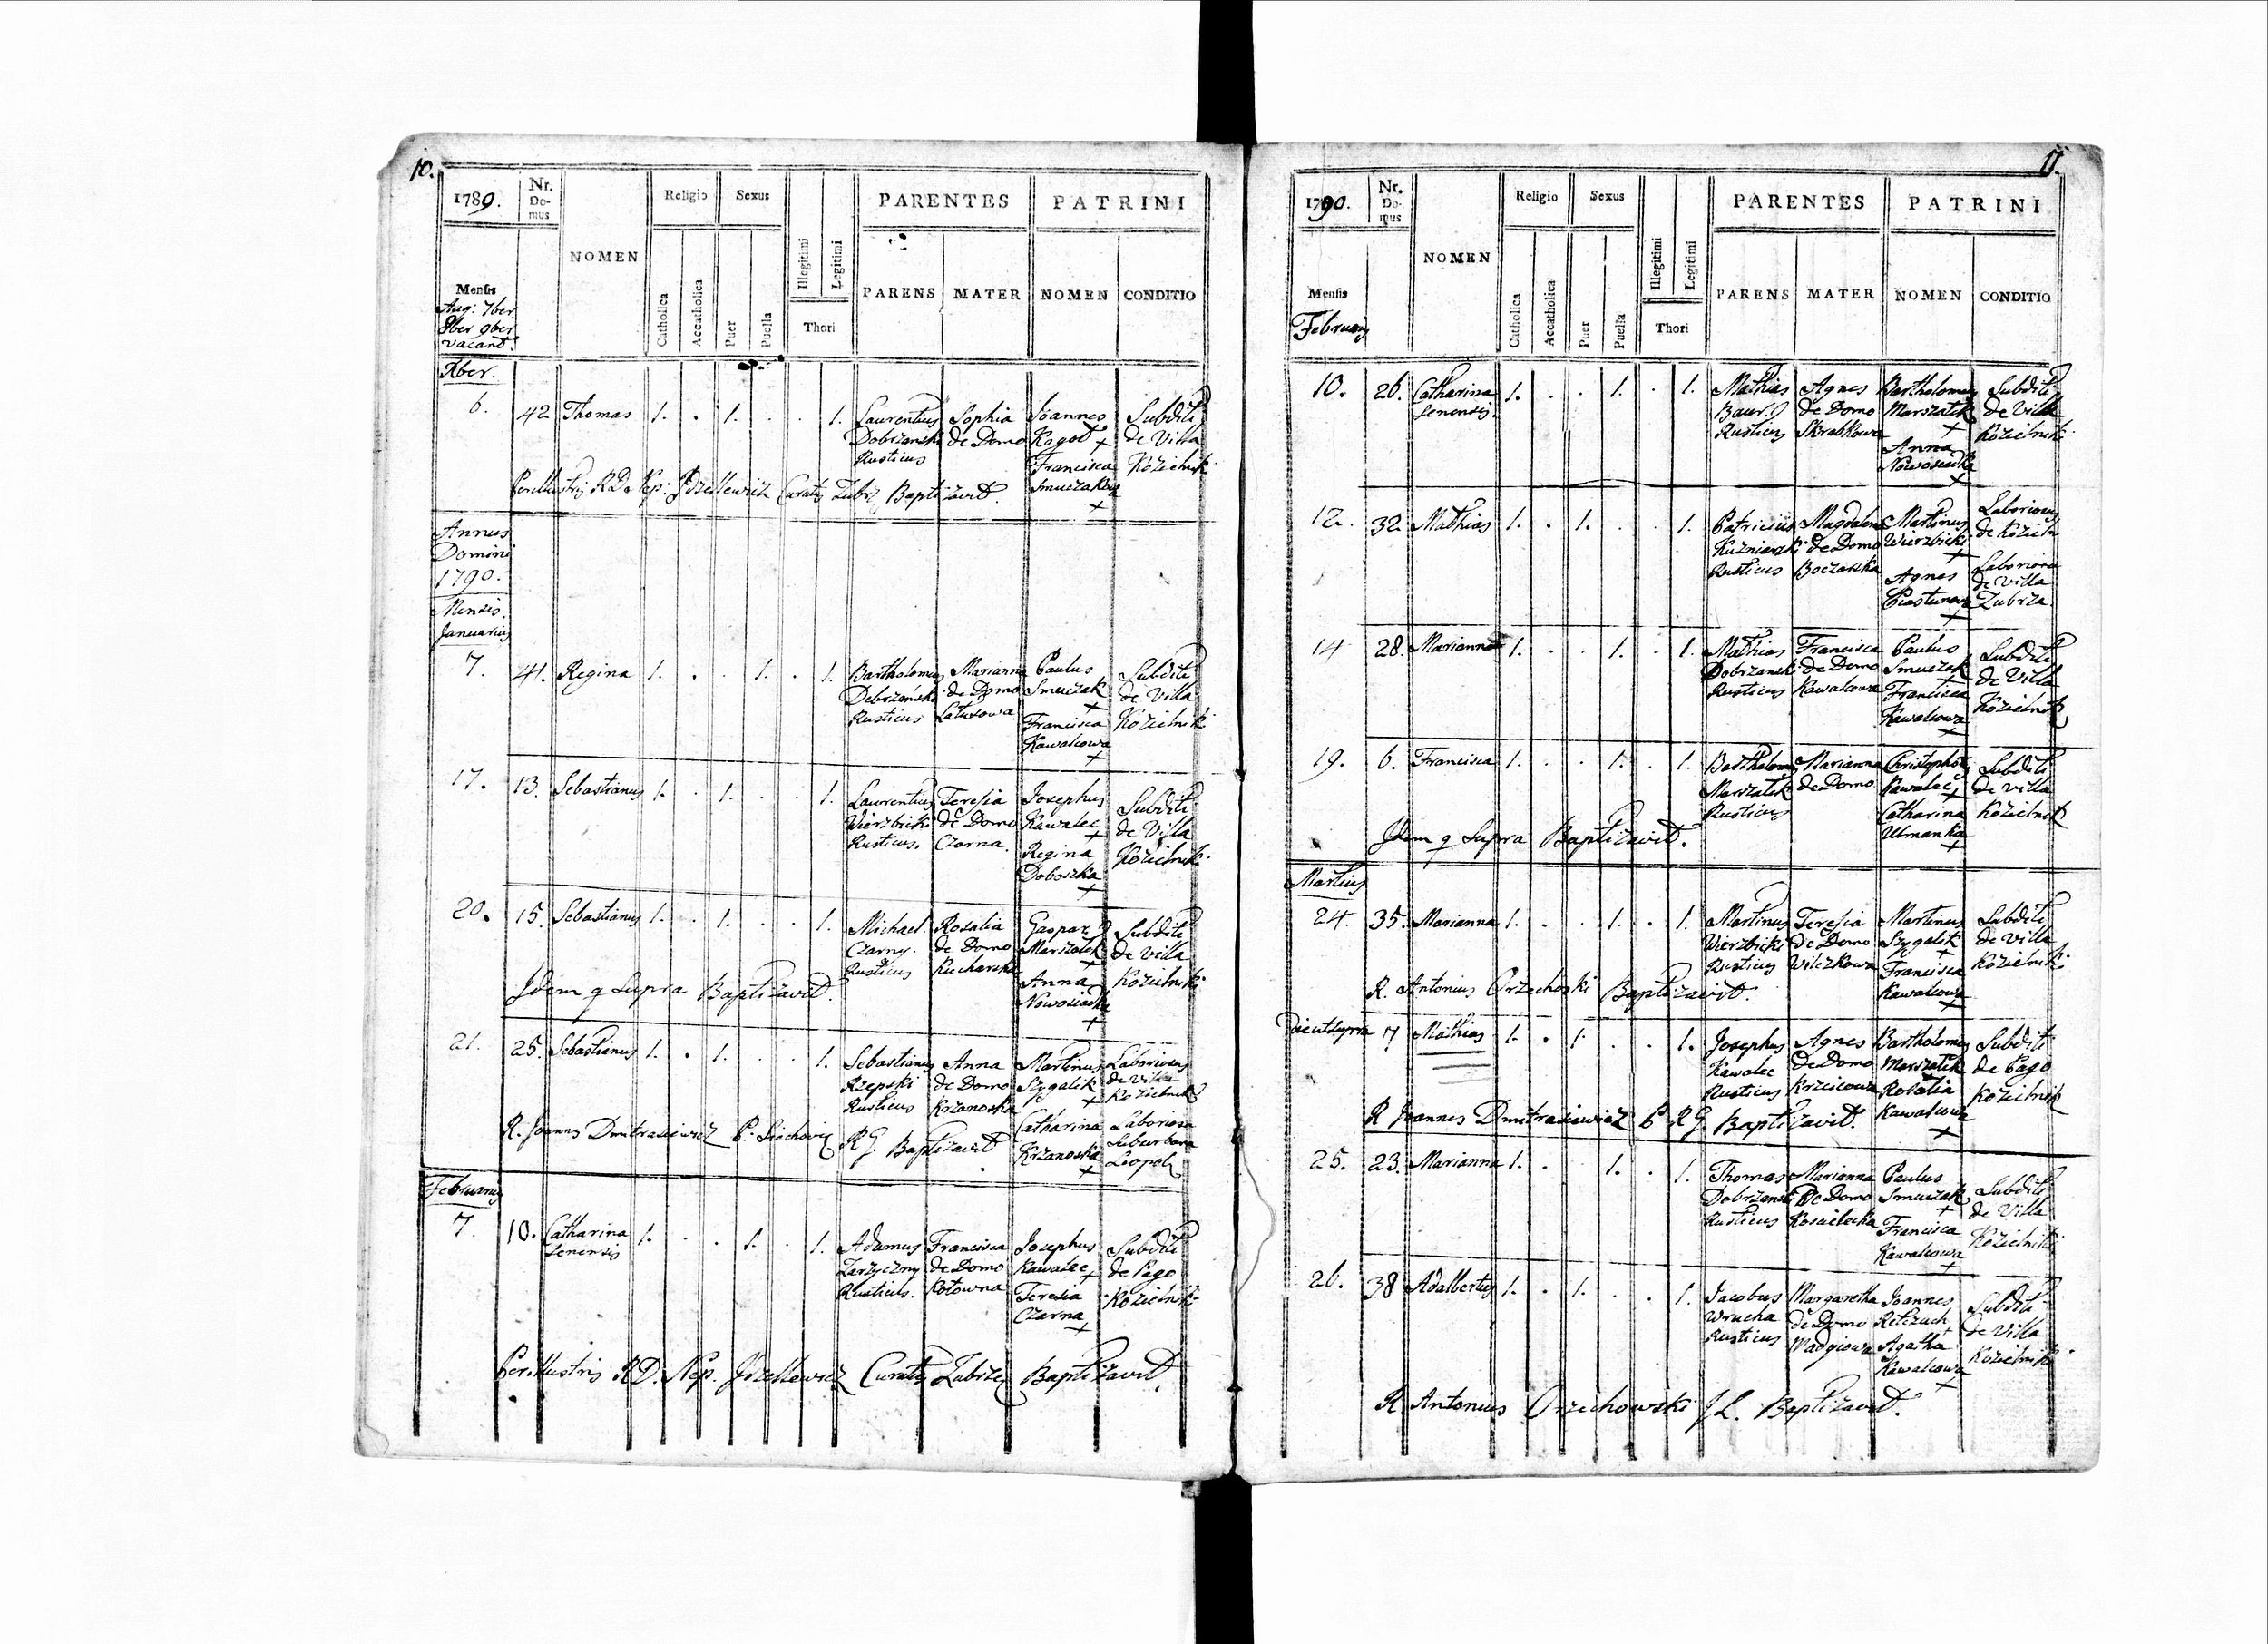 10.
1789. Nr. Domus NOMEN Religio Sexus PARENTES PATRINI
Catholica Accatholica Puer Puella Illegitimi Legitimi Thori PARENS MATER NOMEN CONDITIO
Mensis
Aug: 7ber
8ber 9ber
vacant.
Xber.
6. 42 Thomas 1. . 1. . . 1. Laurentius Sophia Joannes Subditi
Dobrzanski de Domo Kogot + de Villa
Rusticus Francisca Kozielnik
Smuczakowa +
Perillustris R D Nep: Curatus Zubrz Baptizavit.
Annus
Domini
1790.
Mensis.
Januarius
7. 41. Regina 1. . . 1. . 1. Bartholomeus Marianna Paulus Subditi
Debrzański de Domo Smuczak + de Villa
Rusticus Latusowa Francisca Kozielnik
Kawalcowa +
17. 13. Sebastianus 1. . 1. . . 1. Laurentius Teresia Josephus Subditi
Wierzbicki de Domo Kawalec + de Villa
Rusticus. Czarna. Regina Kozielniki
Doboszka +
20. 15. Sebastianus 1. . 1. . . 1. Michael Rosalia Gaspar Subditi
Czarny. de Domo Marszalek + de Villa
Rusticus Kucharska Anna Kozielniki
Nowosiadka +
Idem q Supra Baptizavit.
21. 25. Sebastianus 1. . 1. . . 1. Sebastianus Anna Martinus Laboriosus
Rzepski de Domo Szygalik + de Villa
Rusticus Krzanoska Kozielnik
Catharina Laboriosa
Krzanoska + Suburbana
Leopol
R. Joannes Dmitrasiewicz P. R G. Baptizavit
Februarius
7. 10. Catharina 1. . . 1. . 1. Adamus Francisca Josephus Subditi
Senensis Zarzyczny de Domo Kawalec + de Pago
Rusticus. Kotowna Teresia Kozielnik
Czarna +
Perillustris R D. Nep. Curatus Zubrze Baptizavit.
11.
1790. Nr. Domus NOMEN Religio Sexus PARENTES PATRINI
Catholica Accatholica Puer Puella Illegitimi Legitimi Thori PARENS MATER NOMEN CONDITIO
Mensis
Februarius
10. 26. Catharina 1. . . 1. . 1. Mathias Agnes Bartholomeus Subditi
Senensis. Baur. de Domo Marszalek + de Villa
Rusticus Skrabkowa Anna Kozielniki
Nowosiadka +
12. 32. Mathias 1. . 1. . . 1. Patricius Magdalena Martinus Laboriosus
Kuzniarski de Domo Wierzbicki + de Kozieln
Rusticus Boczarska Agnes Laboriosa
Piastunowa + de Villa
Zubrza.
14 28. Marianna 1. . . 1. . 1. Mathias Francisca Paulus Subditi
Dobrzanski de Domo Smuczak de Villa
Rusticus Kawalcowa Francisca Kozielnik
Kawalcowa +
19. 6. Francisca 1. . . 1. . 1. Bartholomeus Marianna Christophorus Subditi
Marszalek de Domo Kawalec + de Villa
Rusticus Catharina Kozielnik
Ulmanka +
Idem q Supra Baptizavit.
Martius
24. 35. Marianna 1. . . 1. . 1. Martinus Teresia Martinus Subditi
Wierzbicki de Domo Szygalik + de Villa
Rusticus Wilczkowa Francisca Kozielniki
Kawalcowa +
R. Antonius Orzechoski Baptizavit.
Die ut supra 7 Mathias 1. . 1. . . 1. Josephus Agnes Bartholomeus Subditi
Kawalec de Domo Marszalek de Pago
Rusticus Krzciowa Rosalia Kozielnik
Kawalcowa +
R Joannes Dmitrasiewicz P R G Baptizavit.
25. 23. Marianna 1. . . 1. . 1. Thomas Marianna Paulus Subditi
Dobrzanski De Domo Smuczak + de Villa
Rusticus Kosaclecka Francisca Kozielniki
Kawalcowa +
26. 38 Adalbertus 1. . 1. . . 1. Jacobus Margaretha Joannes Subditi
Wrucha de Domo Retczuch + de Villa
Rusticus Madgiowa Agatha Kozielnik
Kawalcowa +
R Antonius Orzechowski J L. Baptizavit.